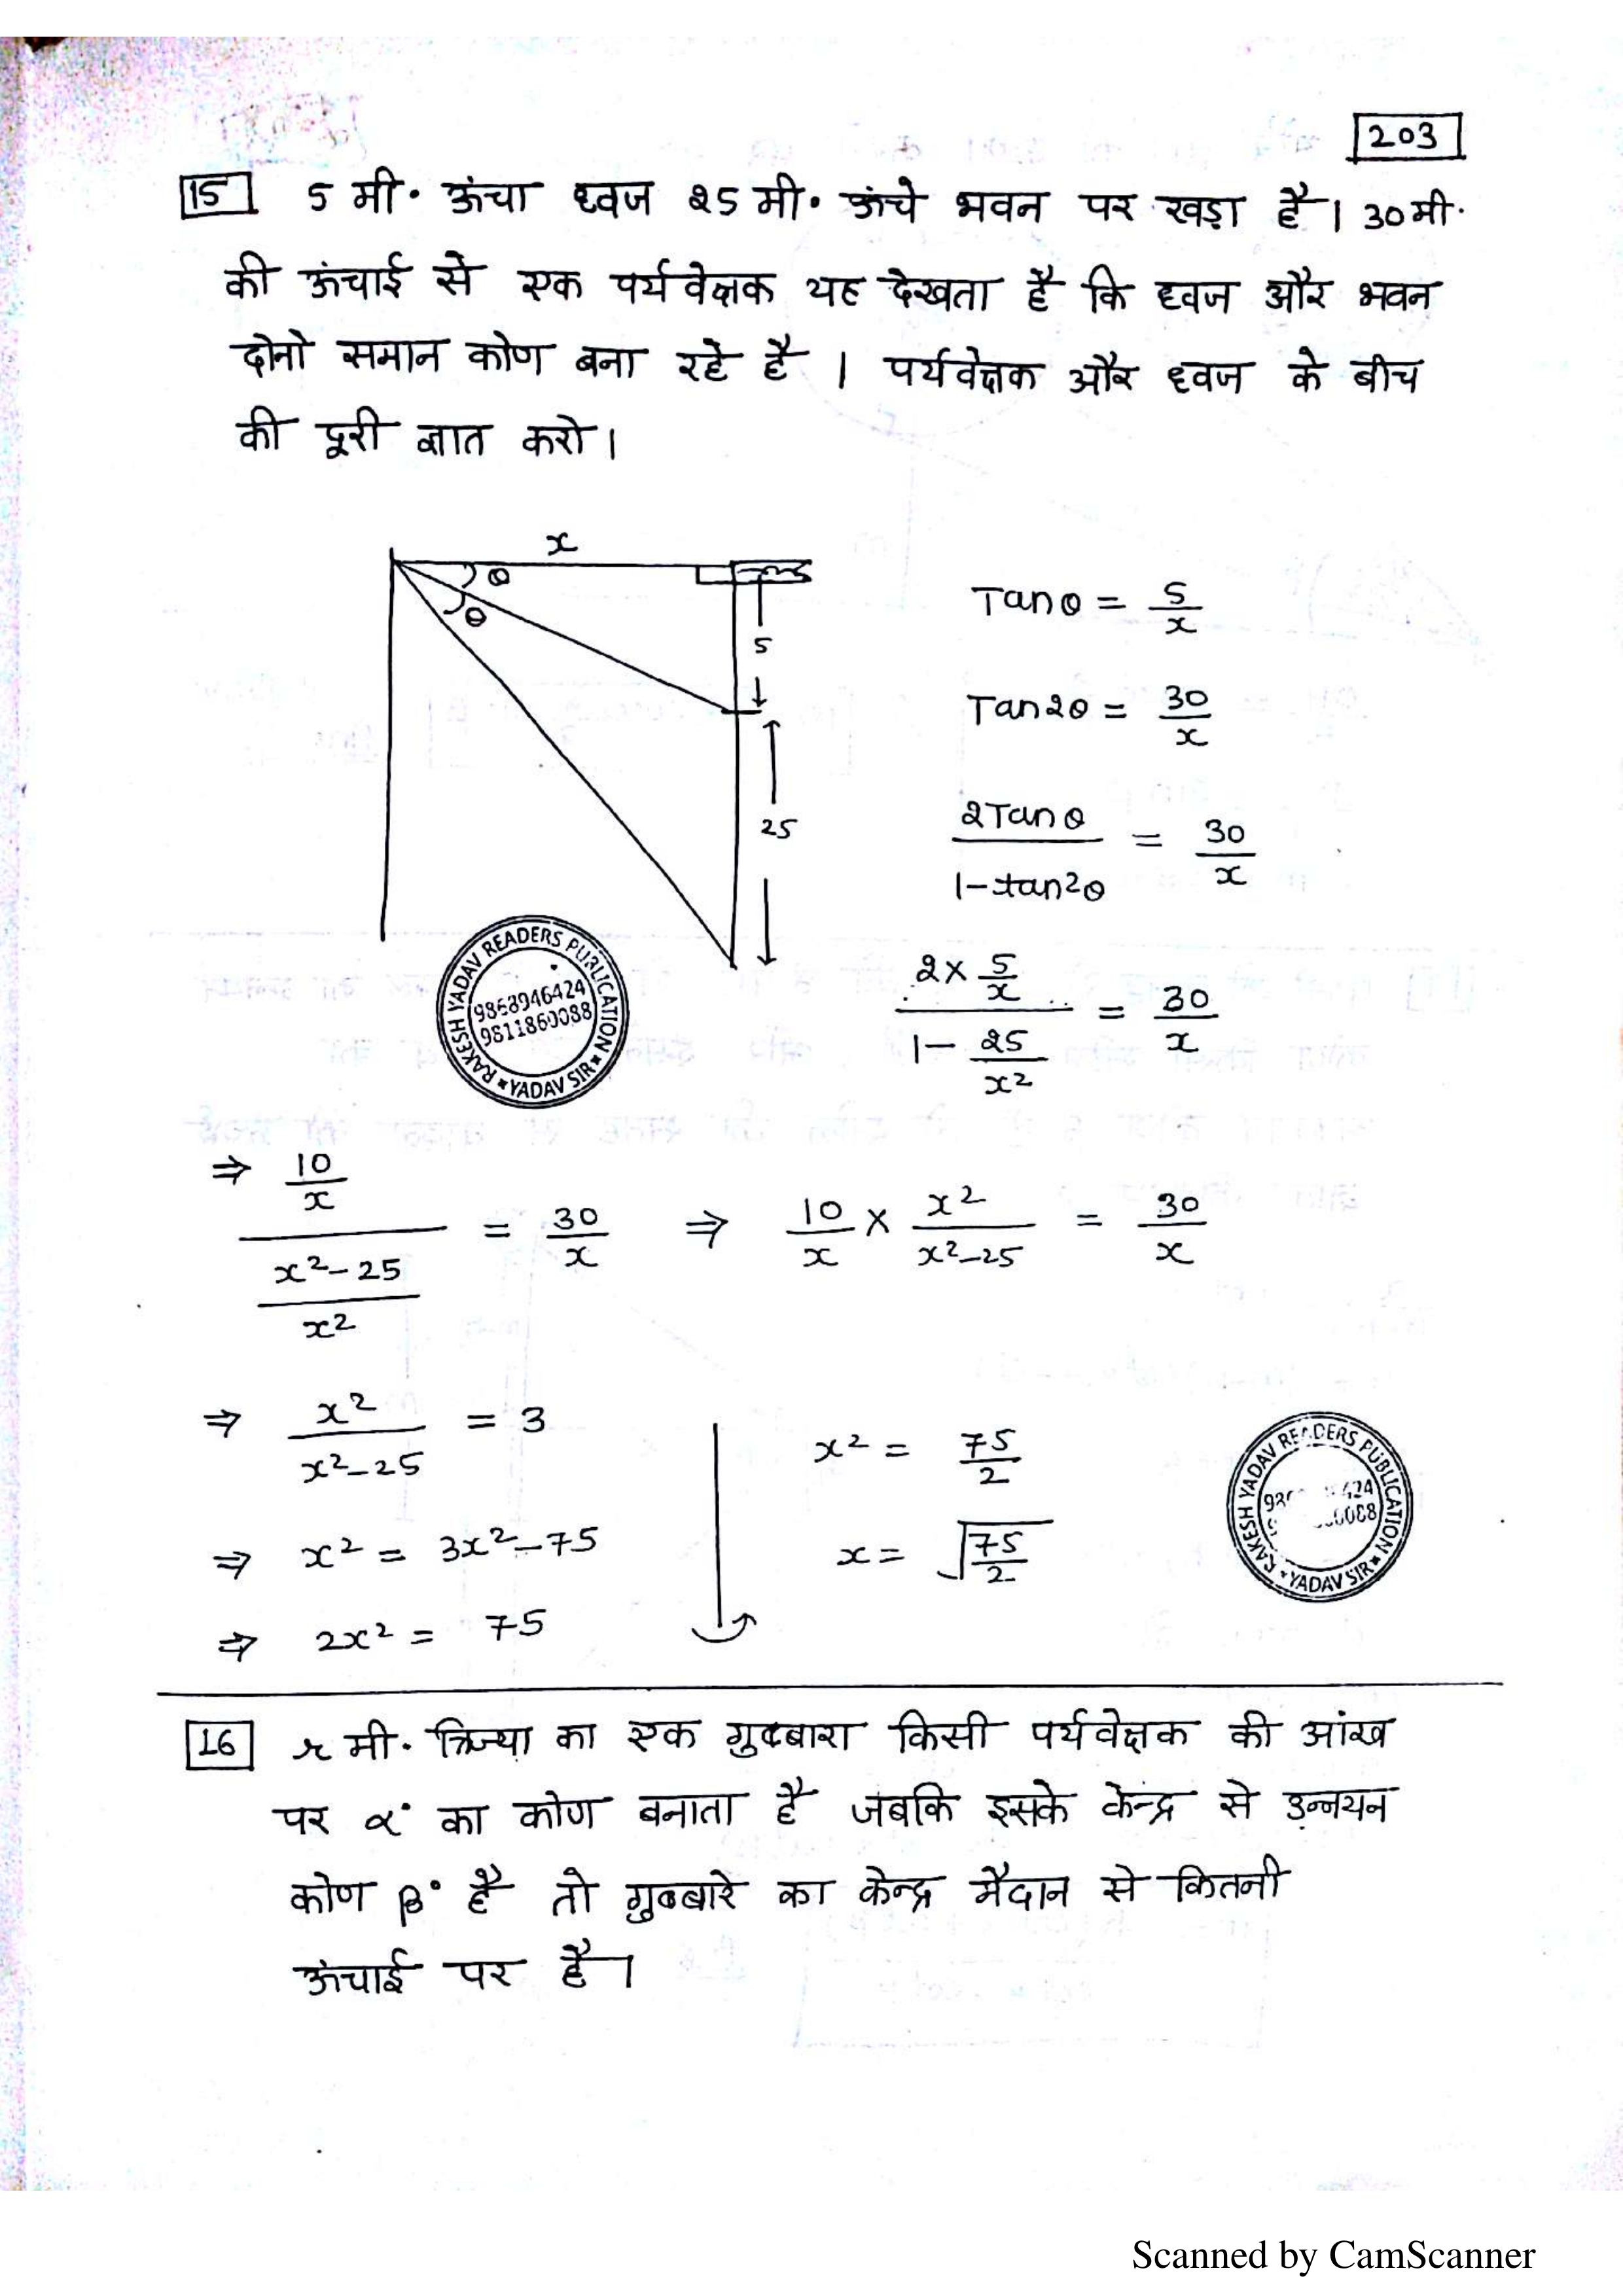 203
15 5 मी. ऊंचा ध्वज 25 मी. ऊंचे भवन पर खड़ा है। 30 मी.
की ऊंचाई से एक पर्यवेक्षक यह देखता है कि ध्वज और भवन
दोनो समान कोण बना रहे है । पर्यवेक्षक और ध्वज के बीच
की दूरी ज्ञात करो।
x
θ
θ
5
25
Tanθ = 5/x
Tan2θ = 30/x
2Tanθ / 1-tan2θ = 30/x
2 x 5/x / 1 - 25/x² = 30/x
RAKESH YADAV READERS PUBLICATION * YADAV SIR *
9868946424
9811860088
⇒ 10/x / x²-25/x² = 30/x ⇒ 10/x x x²/x²-25 = 30/x
⇒ x²/x²-25 = 3
⇒ x² = 3x²-75
⇒ 2x² = 75
x² = 75/2
x = √75/2
RAKESH YADAV READERS PUBLICATION * YADAV SIR *
16 r मी. त्रिज्या का एक गुब्बारा किसी पर्यवेक्षक की आंख
पर α° का कोण बनाता है जबकि इसके केन्द्र से उन्नयन
कोण β° है तो गुब्बारे का केन्द्र मैदान से कितनी
ऊंचाई पर है।
Scanned by CamScanner